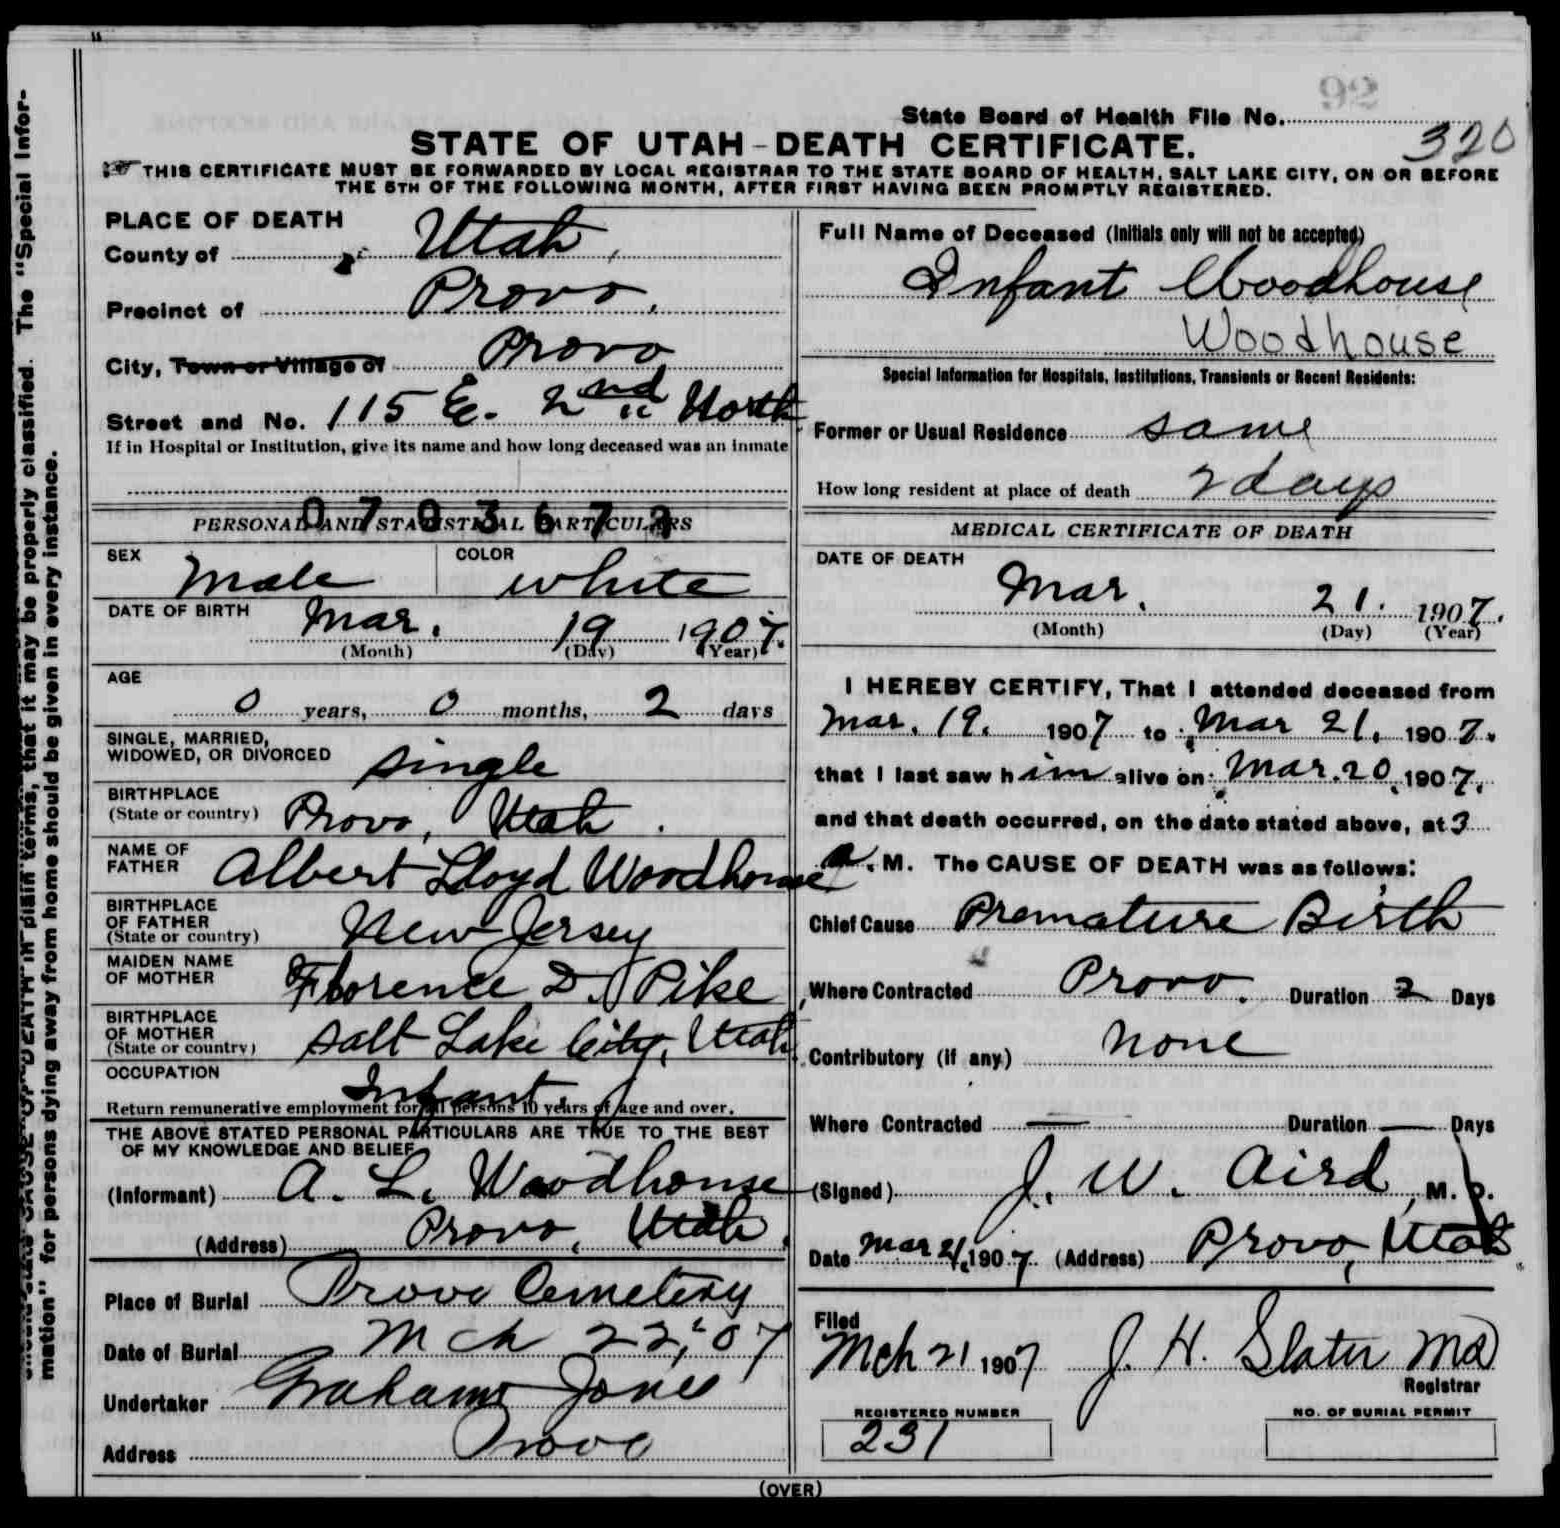 92
State Board of Health File No.
320
STATE OF UTAH-DEATH CERTIFICATE.
THIS CERTIFICATE MUST BE FORWARDED BY LOCAL REGISTRAR TO THE STATE BOARD OF HEALTH, SALT LAKE CITY, ON OR BEFORE
THE 5TH OF THE FOLLOWING MONTH, AFTER FIRST HAVING BEEN PROMPTLY REGISTERED.
PLACE OF DEATH
County of Utah,
Precinct of Provo.
City, Town or Village of Provo
Street and No. 115 E. 2nd North
If in Hospital or Institution, give its name and how long deceased was an inmate
PERSONAL AND STATISTICAL PARTICULARS
SEX Male COLOR white
DATE OF BIRTH Mar. 19 1907.
(Month) (Day) (Year)
AGE
0 years, 0 months, 2 days
SINGLE, MARRIED,
WIDOWED, OR DIVORCED single
BIRTHPLACE
(State or country) Provo, Utah.
NAME OF
FATHER Albert Lloyd Woodhouse
BIRTHPLACE
OF FATHER
(State or country) New Jersey
MAIDEN NAME
OF MOTHER Florence D. Pike
BIRTHPLACE
OF MOTHER
(State or country) Salt Lake City, Utah.
OCCUPATION
Infant.
Return remunerative employment for all persons 10 years of age and over.
THE ABOVE STATED PERSONAL PARTICULARS ARE TRUE TO THE BEST
OF MY KNOWLEDGE AND BELIEF
(Informant) A. L. Woodhouse
(Address) Provo, Utah.
Place of Burial Provo Cemetery
Date of Burial Mch 22, '07
Undertaker Graham Jones
Address Provo
Full Name of Deceased (Initials only will not be accepted)
Infant Woodhouse
Woodhouse
Special Information for Hospitals, Institutions, Transients or Recent Residents:
Former or Usual Residence same
How long resident at place of death 2 days
MEDICAL CERTIFICATE OF DEATH
DATE OF DEATH
Mar. 21. 1907.
(Month) (Day) (Year)
I HEREBY CERTIFY, That I attended deceased from
Mar. 19. 1907 to Mar 21. 1907.
that I last saw him alive on Mar. 20, 1907.
and that death occurred, on the date stated above, at 3
a. M. The CAUSE OF DEATH was as follows:
Chief Cause Premature Birth
Where Contracted Provo. Duration 2 Days
Contributory (if any) none
Where Contracted — Duration — Days
(Signed) J. W. Aird, M. D.
Date Mar 21, 1907. (Address) Provo, Utah.
Filed
Mch 21 1907 J. H. Slater MD
Registrar
REGISTERED NUMBER
231
NO. OF BURIAL PERMIT
(OVER)
mation" for persons dying away from home should be given in every instance.
should state CAUSE OF DEATH in plain terms, that it may be properly classified. The "Special Infor-